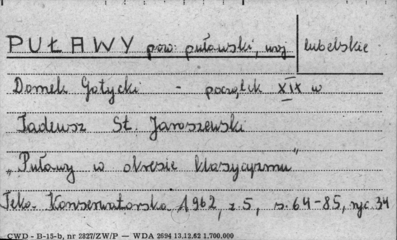 PUŁAWY pow. puławski, woj lubelskie
Domek Gotycki - początek XIX w
Tadeusz St. Jaroszewski
„Puławy w okresie klasycyzmu"
Teka Konserwatorska 1962, z.5, s. 64-85, ryc. 34
CWD - B-15-b, nr 2827/ZW/P — WDA 2694 13.12.62 1.700.000